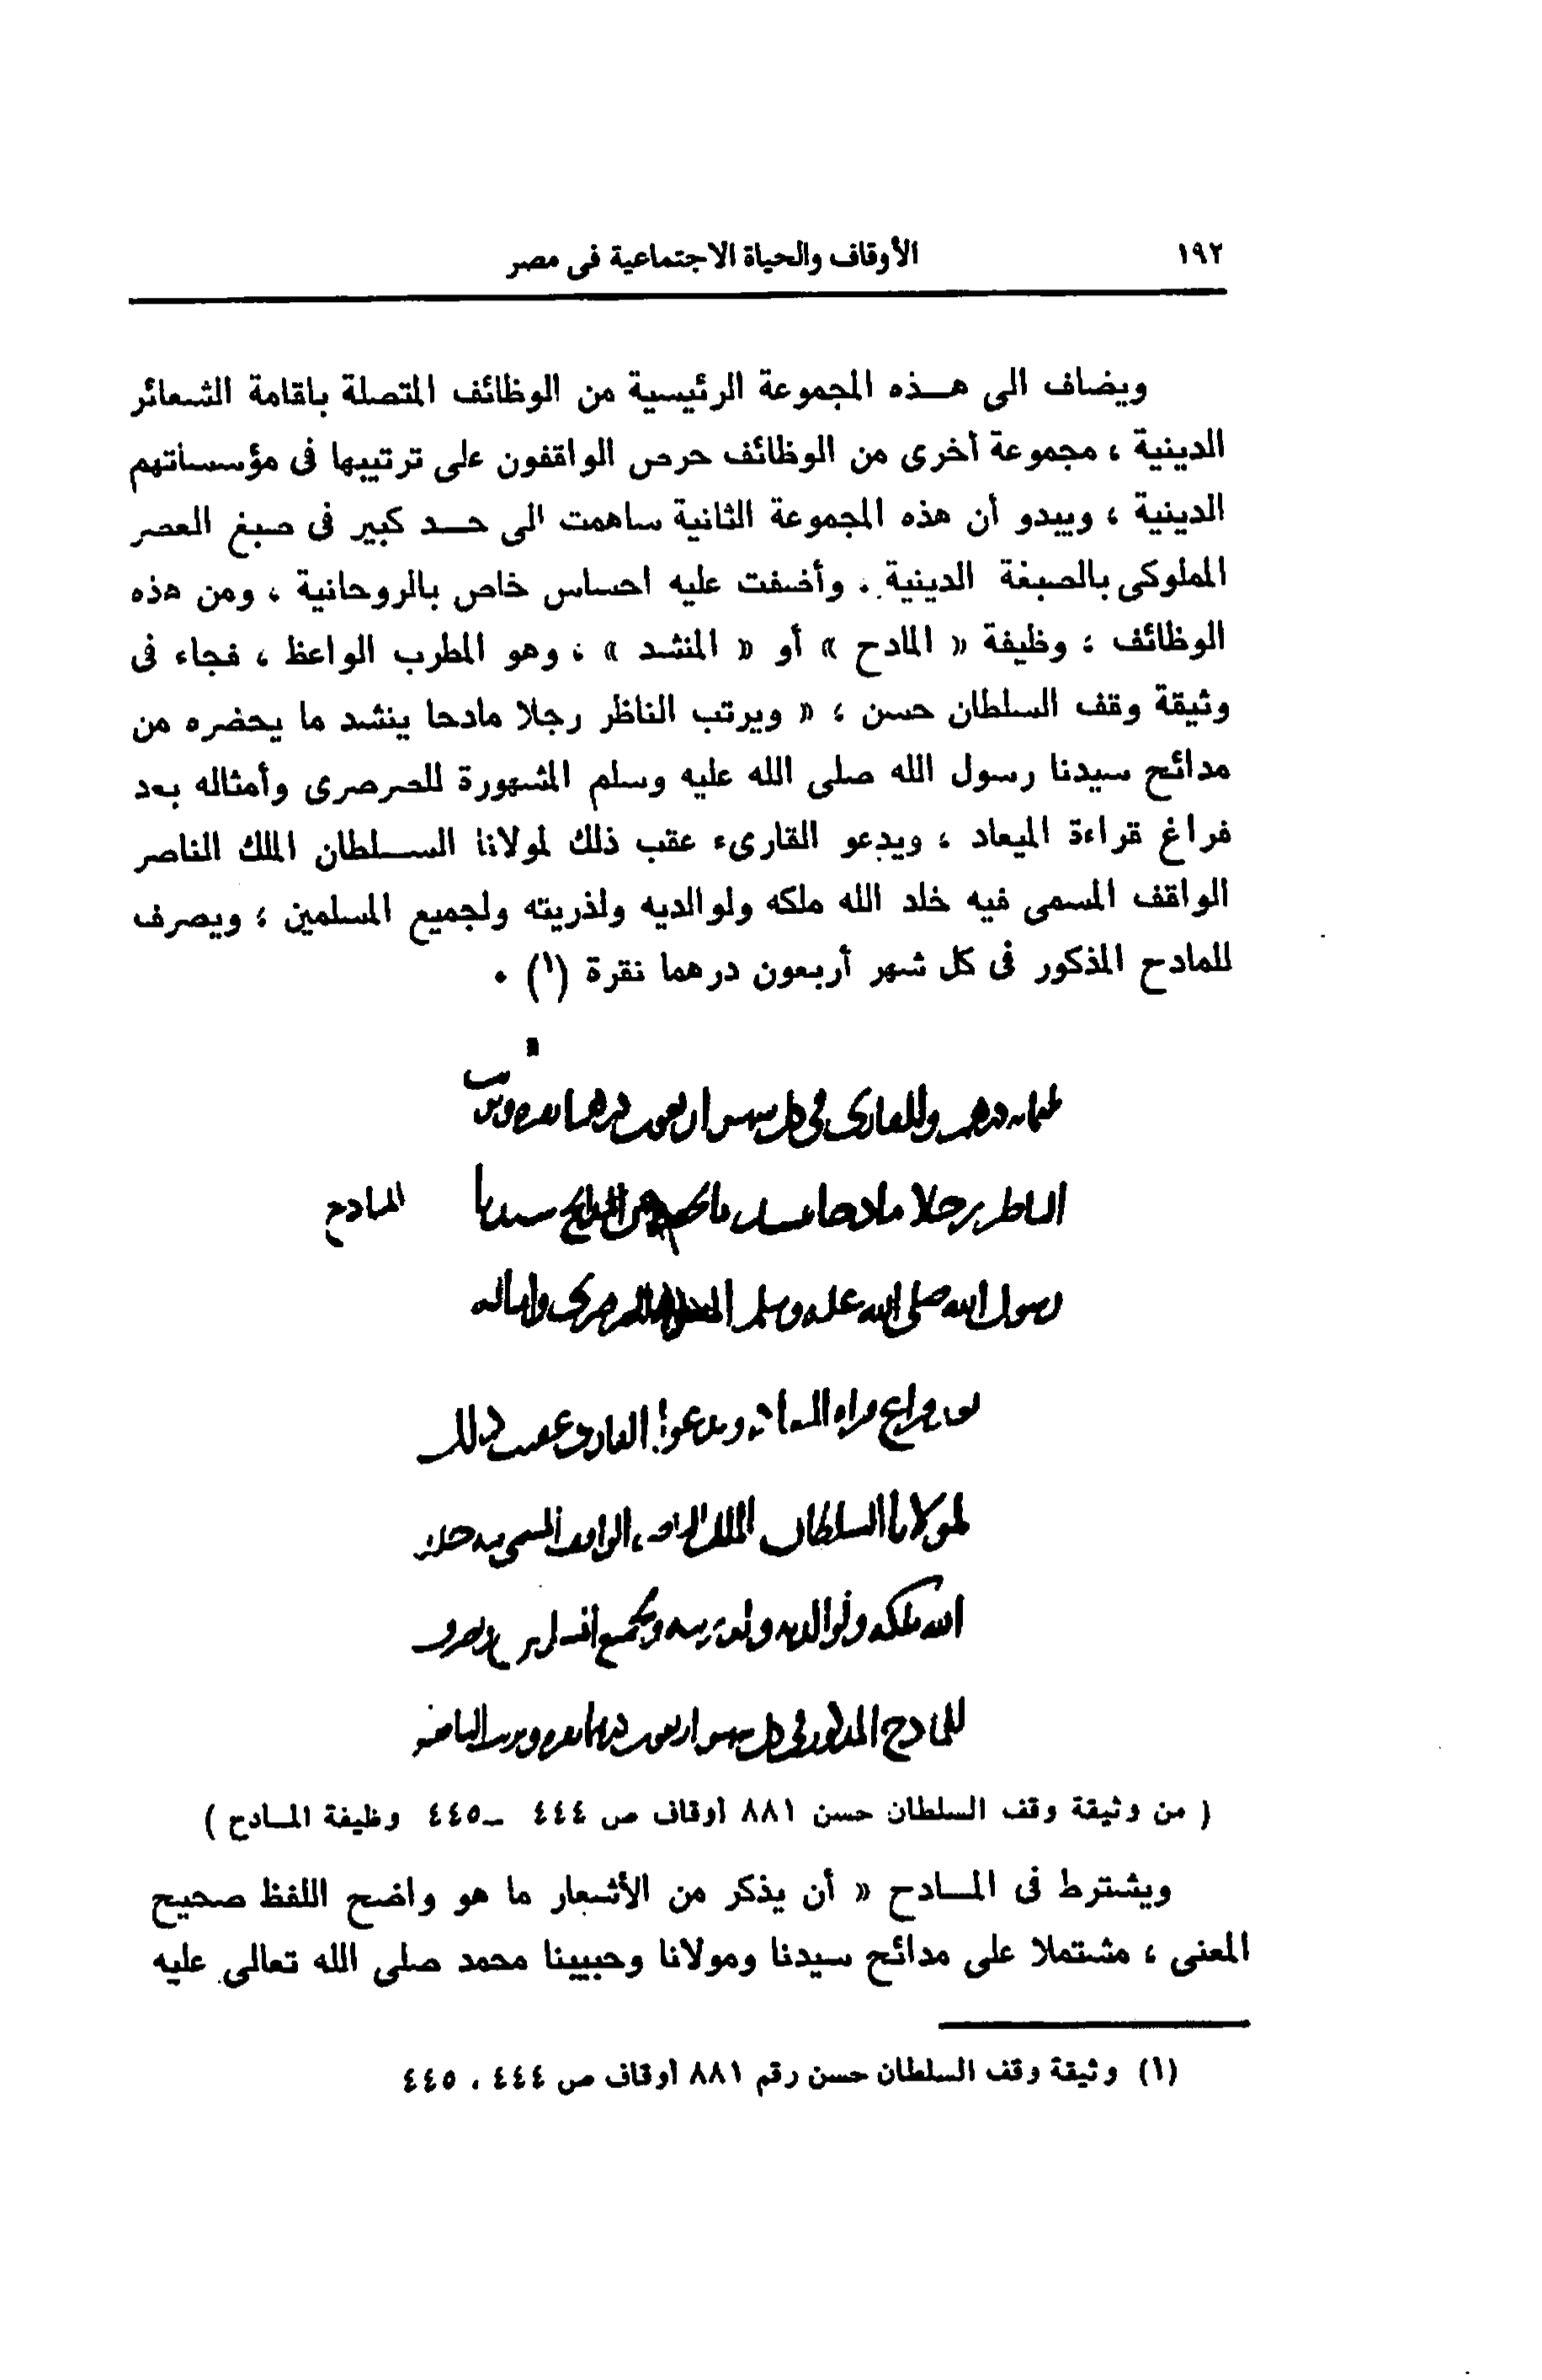 ١٩٢ الأوقاف والحياة الاجتماعية فى مصر
ويضاف الى هــذه المجموعة الرئيسية من الوظائف المتصلة باقامة الشعائر
الدينية ، مجموعة أخرى من الوظائف حرص الواقفون على ترتيبها فى مؤسساتهم
الدينية ، ويبدو أن هذه المجموعة الثانية ساهمت الى حــد كبير فى صبغ العصر
المملوكى بالصبغة الدينية ، وأضفت عليه احساس خاص بالروحانية ، ومن هذه
الوظائف ؛ وظيفة « المادح » أو « المنشد » ، وهو المطرب الواعظ ، فجاء فى
وثيقة وقف السلطان حسن ؛ « ويرتب الناظر رجلا مادحا ينشد ما يحضره من
مدائح سيدنا رسول الله صلى الله عليه وسلم المشهورة للصرصرى وأمثاله بعد
فراغ قراءة الميعاد ، ويدعو القارىء عقب ذلك لمولانا الســلطان الملك الناصر
الواقف المسمى فيه خلد الله ملكه ولوالديه ولذريته ولجميع المسلمين ؛ ويصرف
للمادح المذكور فى كل شهر أربعون درهما نقرة (١) •
درهم وللقارى في كل شهر اربعون درهما نقره ويرتب
الناظر رجلا مادحا ينشد ما يحضره من المدايح سيدنا
المادح
رسول الله صلى الله عليه وسلم للصرصرى وامثاله
بعد فراغ قراه الميعاد ويدعوا القارى عقيب ذلك
لمولانا السلطان الملك الناصر الواقف المسمى فيه خلد
الله ملكه ولوالديه ولذريته ولجميع المسلمين ويصرف
للمادح المذكور في كل شهر اربعون درهما نقره ويرتب الناظر
( من وثيقة وقف السلطان حسن ٨٨١ أوقاف ص ٤٤٤ – ٤٤٥ وظيفة المــادح )
ويشترط فى المــادح « أن يذكر من الأشعار ما هو واضح اللفظ صحيح
المعنى ، مشتملا على مدائح سيدنا ومولانا وحبيبنا محمد صلى الله تعالى عليه
(١) وثيقة وقف السلطان حسن رقم ٨٨١ أوقاف ص ٤٤٤ ، ٤٤٥